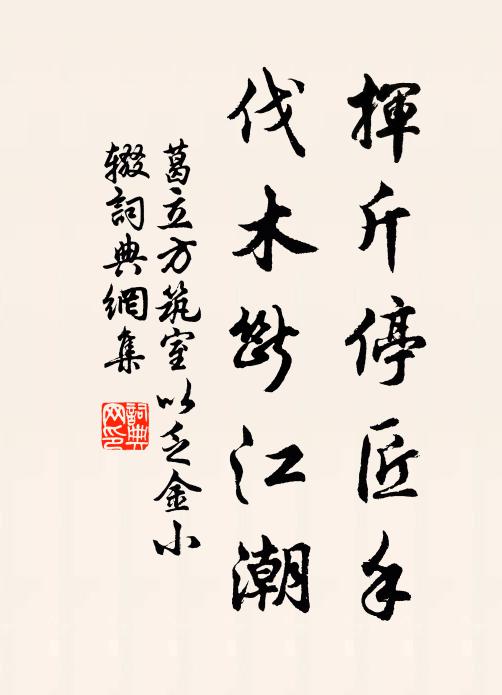 揮斤停匠手
伐木斷江潮
葛立方筑室以乏金小
辍詞典網集
詞典
网印